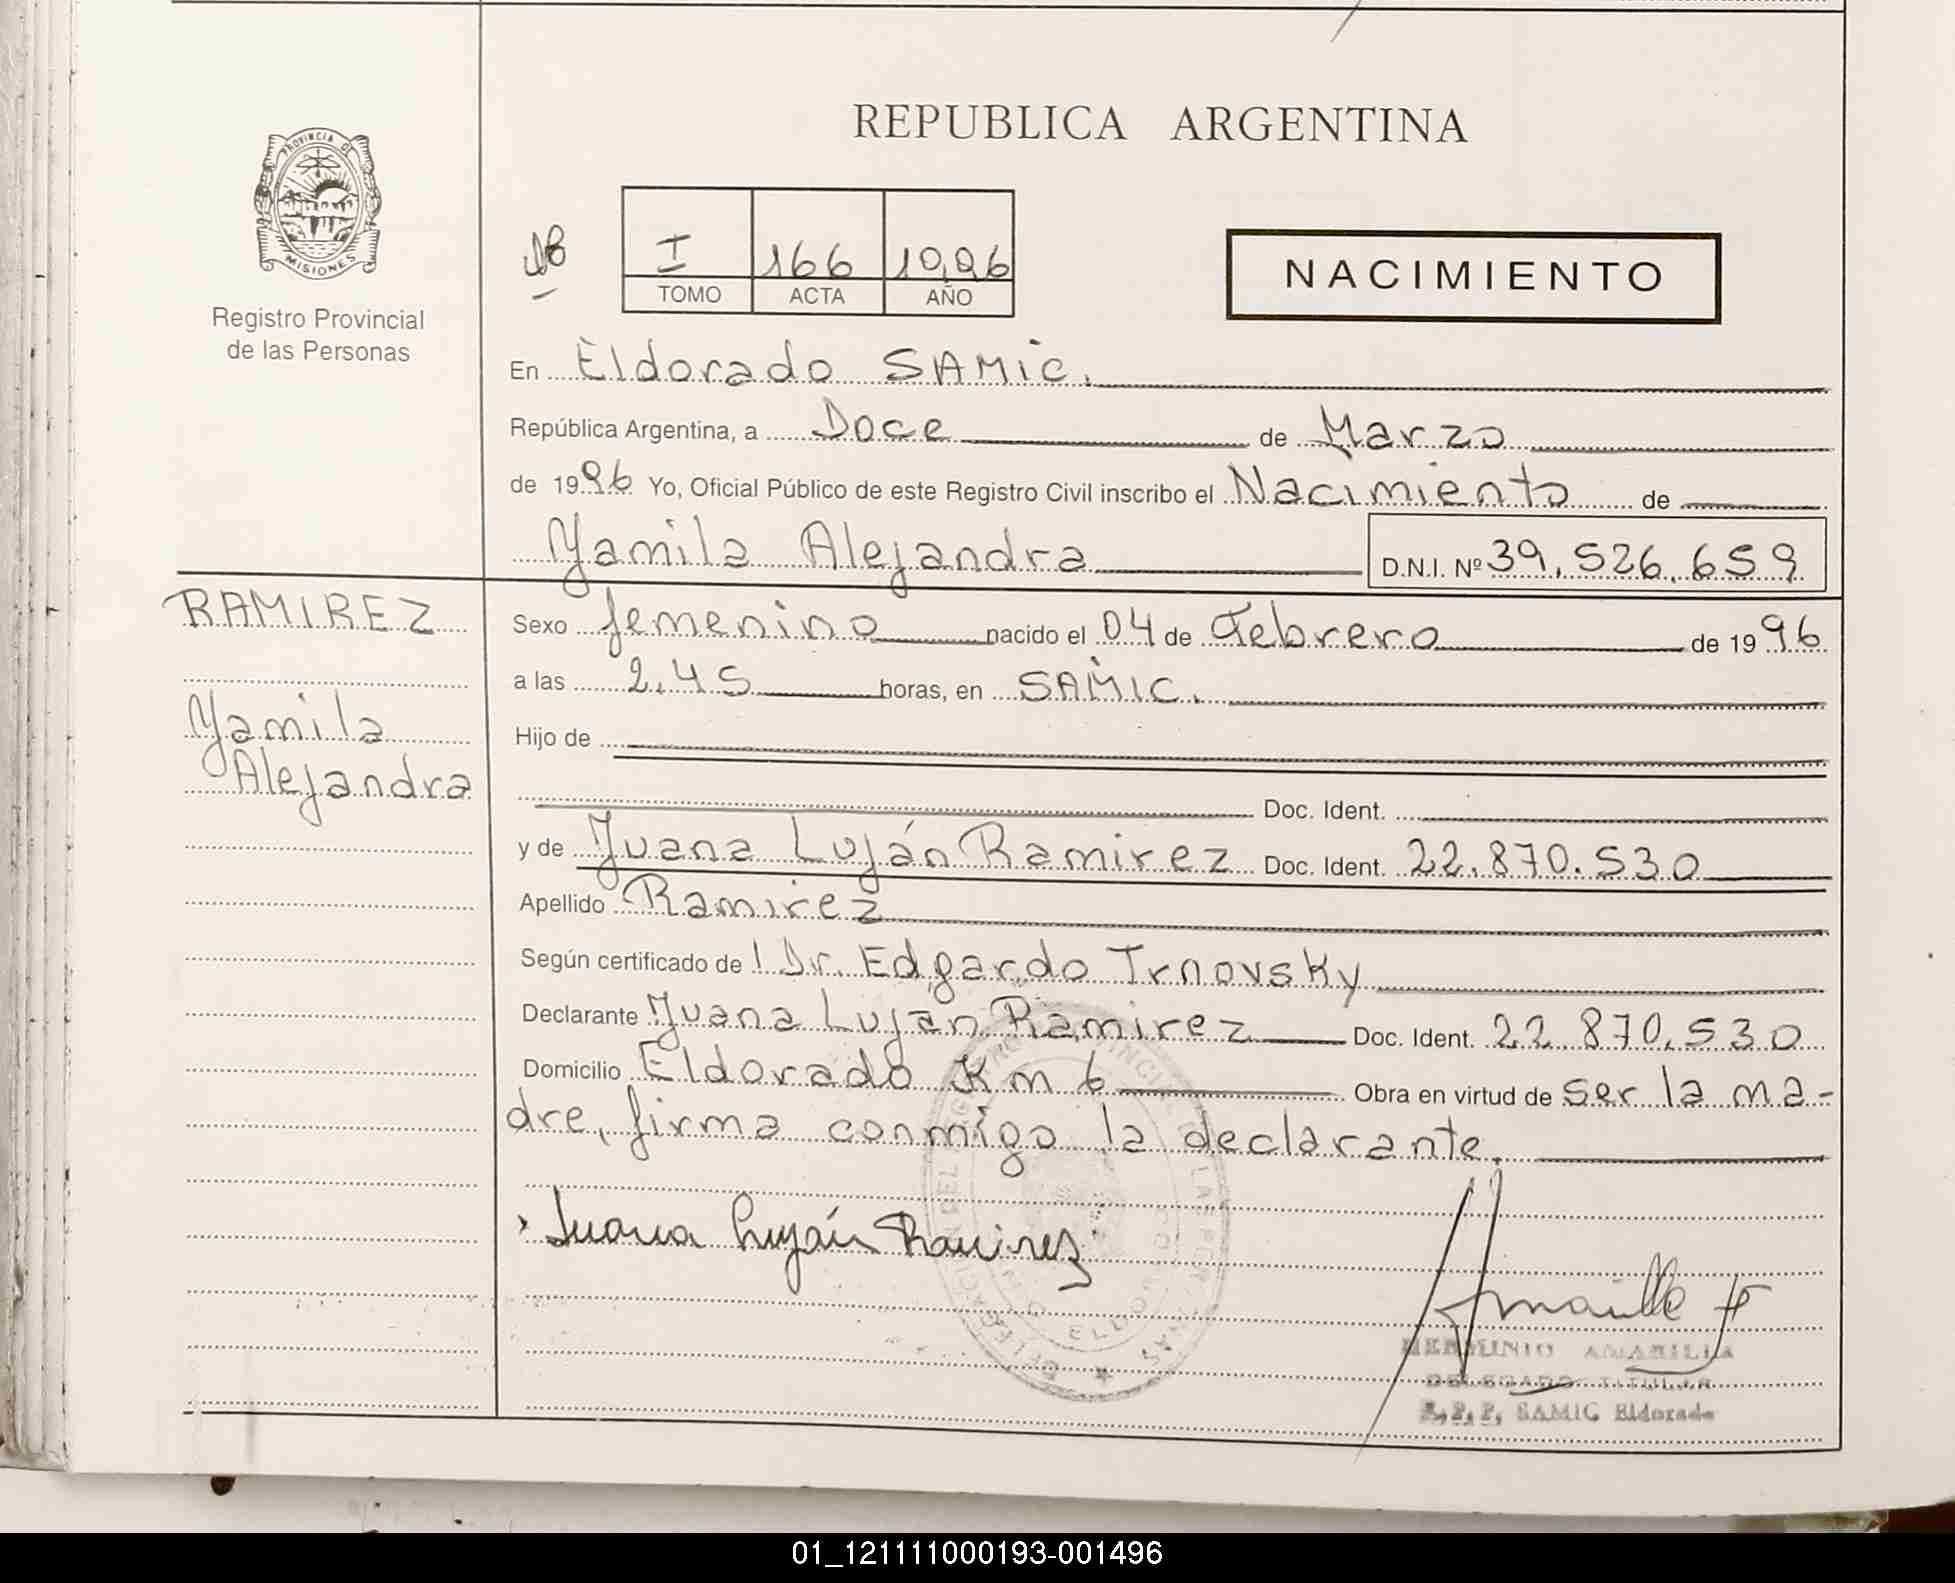 REPUBLICA ARGENTINA
PROVINCIA DE
MISIONES
Registro Provincial
de las Personas
I 166 1996
TOMO ACTA AÑO
NACIMIENTO
En Eldorado SAMIC.
República Argentina, a Doce de Marzo
de 1996 Yo, Oficial Público de este Registro Civil inscribo el Nacimiento de
Yamila Alejandra D.N.I. Nº 39.526.659
RAMIREZ
Yamila
Alejandra
Sexo femenino nacido el 04 de Febrero de 1996
a las 2,45 horas, en SAMIC.
Hijo de
Doc. Ident.
y de Juana Luján Ramirez Doc. Ident. 22.870.530
Apellido Ramirez
Según certificado de l Dr. Edgardo Trnovsky
Declarante Juana Luján Ramirez Doc. Ident. 22.870.530
Domicilio Eldorado Km 6 Obra en virtud de ser la ma-
dre, firma conmigo la declarante.
Juana Luján Ramirez
HERMINIO AMARILLA
DELEGADO TITULAR
R.P.P. SAMIC Eldorado
01_121111000193-001496